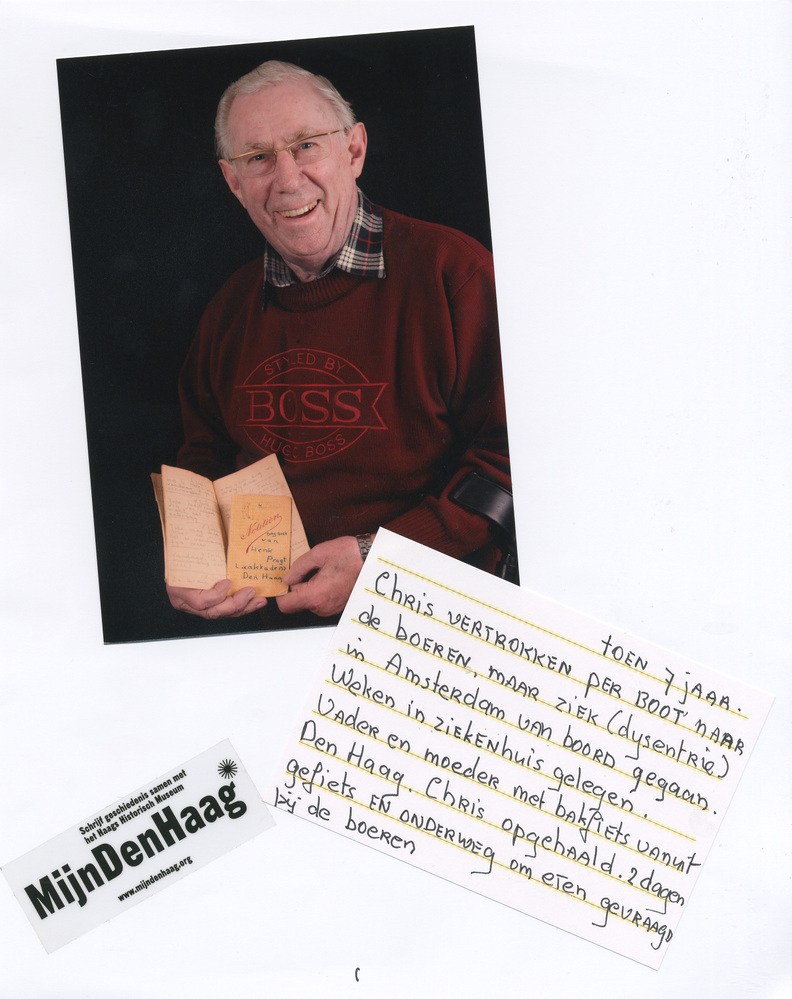 STYLED BY
BOSS
HUGO BOSS
Notities
van
Henk
Pragt
Den Haag
toen 7 jaaa.
Chris vertrokken per boot naar
de boeren, maar ziek (dysentrie)
in Amsterdam van boord gegaan.
Weken in ziekenhuis gelegen.
Vader en moeder met bakfiets vanuit
Den Haag. Chris opgehaald. 2 dagen
gefiets en onderweg om eten gevraagd
bij de boeren
Schrijf geschiedenis samen met
het Haags Historisch Museum
MijnDenHaag
www.mijndenhaag.org